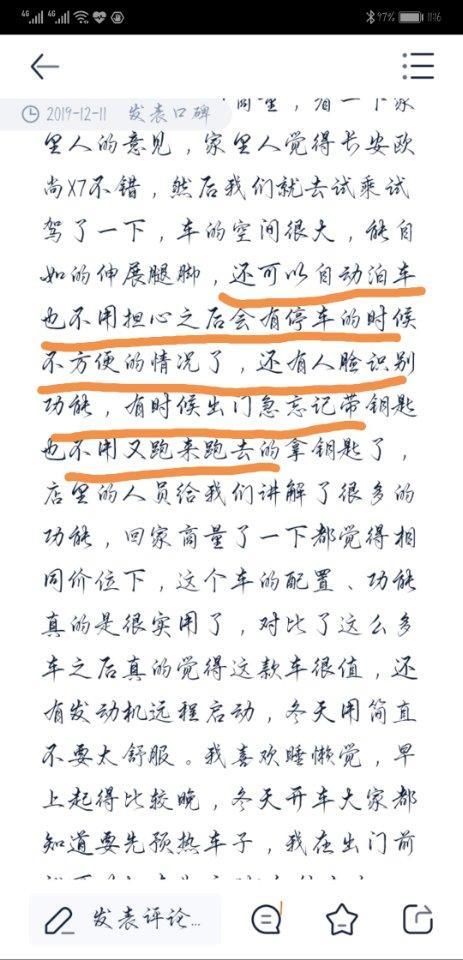 4G 4G 97% 11:16
2019-12-11 发表口碑
里人的意见，家里人觉得长安欧
尚X7不错，然后我们就去试乘试
驾了一下，车的空间很大，能自
如的伸展腿脚，还可以自动泊车
也不用担心之后会有停车的时候
不方便的情况了，还有人脸识别
功能，有时候出门急忘记带钥匙
也不用又跑来跑去的拿钥匙了，
店里的人员给我们讲解了很多的
功能，回家商量了一下都觉得相
同价位下，这个车的配置、功能
真的是很实用了，对比了这么多
车之后真的觉得这款车很值，还
有发动机远程启动，冬天用简直
不要太舒服。我喜欢睡懒觉，早
上起得比较晚，冬天开车大家都
知道要先预热车子，我在出门前
发表评论...